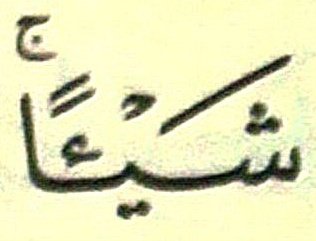 شَيْـًٔاۚ